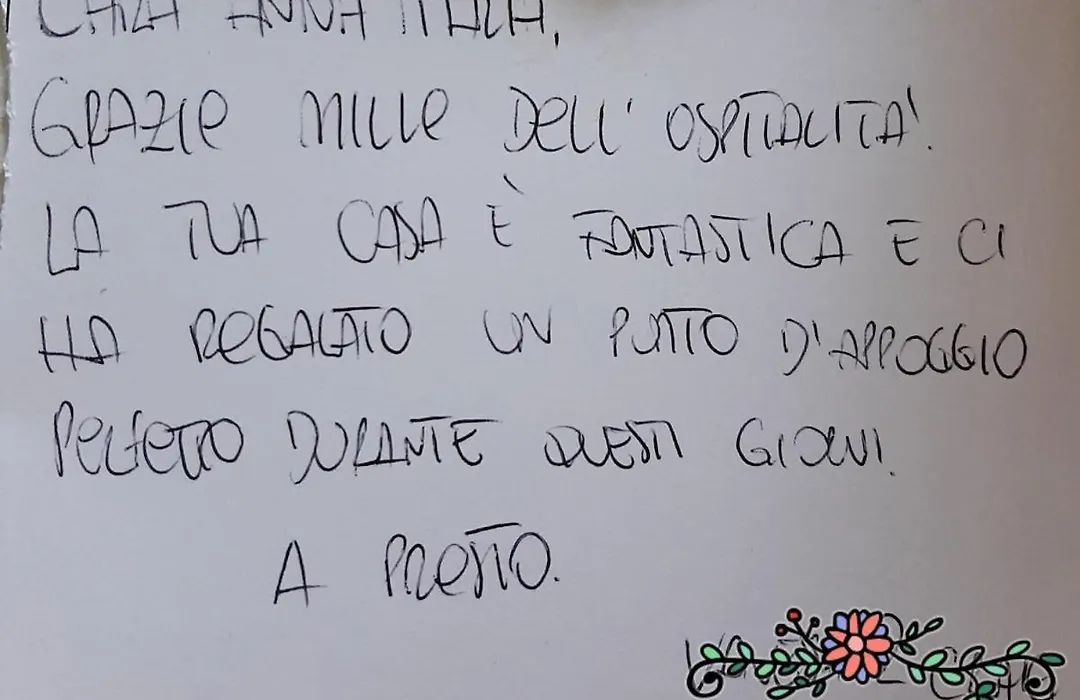 CARA ANNA ITALA,
GRAZIE MILLE DELL'OSPITALITA'.
LA TUA CASA È FANTASTICA E CI
HA REGALATO UN PUNTO D'APPOGGIO
PERFETTO DURANTE QUESTI GIORNI.
A PRESTO.